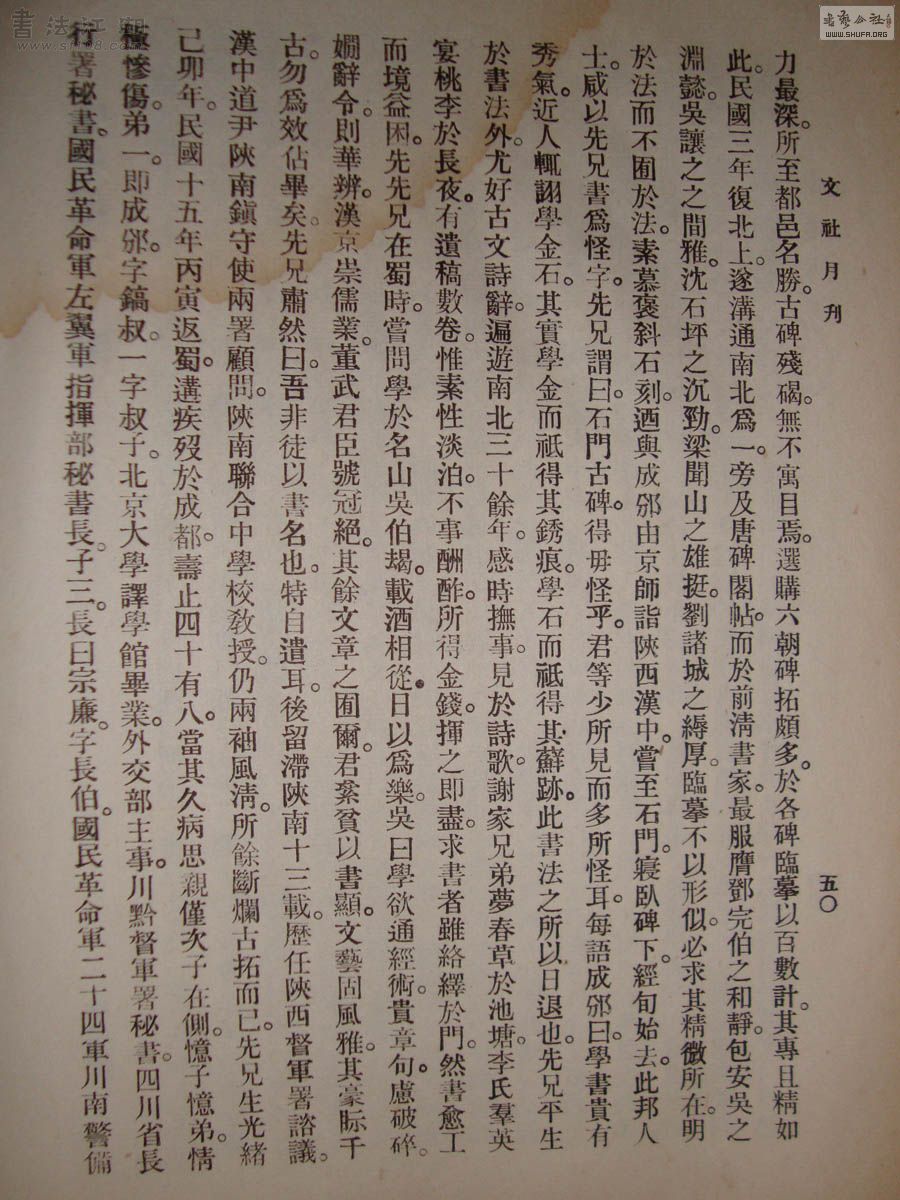 文社月刊
五〇
力最深。所至都邑名勝。古碑殘碣。無不寓目焉。選購六朝碑拓頗多。於各碑臨摹以百數計。其專且精如
此。民國三年復北上。遂溝通南北爲一。旁及唐碑閣帖。而於前淸書家。最服膺鄧完伯之和靜。包安吳之
淵懿。吳讓之之間雅。沈石坪之沉勁。梁聞山之雄挺。劉諸城之縟厚。臨摹不以形似。必求其精微所在。明
於法而不囿於法。素慕褒斜石刻。迺與成邠由京師詣陝西漢中。嘗至石門。寢臥碑下。經旬始去。此邦人
士。咸以先兄書爲怪字。先兄謂曰。石門古碑。得毋怪乎。君等少所見而多所怪耳。每語成邠曰。學書貴有
秀氣。近人輒謝學金石。其實學金而祗得其銹痕。學石而祗得其蘚跡。此書法之所以日退也。先兄平生
於書法外。尤好古文詩辭。遍遊南北三十餘年。感時撫事。見於詩歌。謝家兄弟夢春草於池塘。李氏羣英
宴桃李於長夜。有遺稿數卷。惟素性淡泊。不事酬酢。所得金錢。揮之即盡。求書者雖絡繹於門。然書愈工
而境益困。先先兄在蜀時。嘗問學於名山吳伯朅。載酒相從。日以爲樂。吳曰學欲通經術。貴章句。慮破碎。
嫺辭令。則華辨。漢京崇儒業。董武君臣號冠絕。其餘文章之囿爾。君蒸貧以書顯。文藝固風雅。其豪眎千
古。勿爲效佔畢矣。先兄肅然曰。吾非徒以書名也。特自遣耳。後留滯陝南十三載。歷任陝西督軍署諮議。
漢中道尹陝南鎭守使兩署顧問。陝南聯合中學校敎授。仍兩袖風淸。所餘斷爛古拓而已。先兄生光緒
己卯年。民國十五年丙寅返蜀。遘疾歿於成都。壽止四十有八。當其久病思親。僅次子在側。憶子憶弟。情
極慘傷。弟一。即成邠。字鎬叔。一字叔子。北京大學譯學館畢業。外交部主事。川黔督軍署秘書。四川省長
行署秘書。國民革命軍左翼軍指揮部秘書長。子三。長曰宗廉。字長伯。國民革命軍二十四軍川南警備
書法江湖
www.sf108.com
書藝公社
WWW.SHUFR.ORG